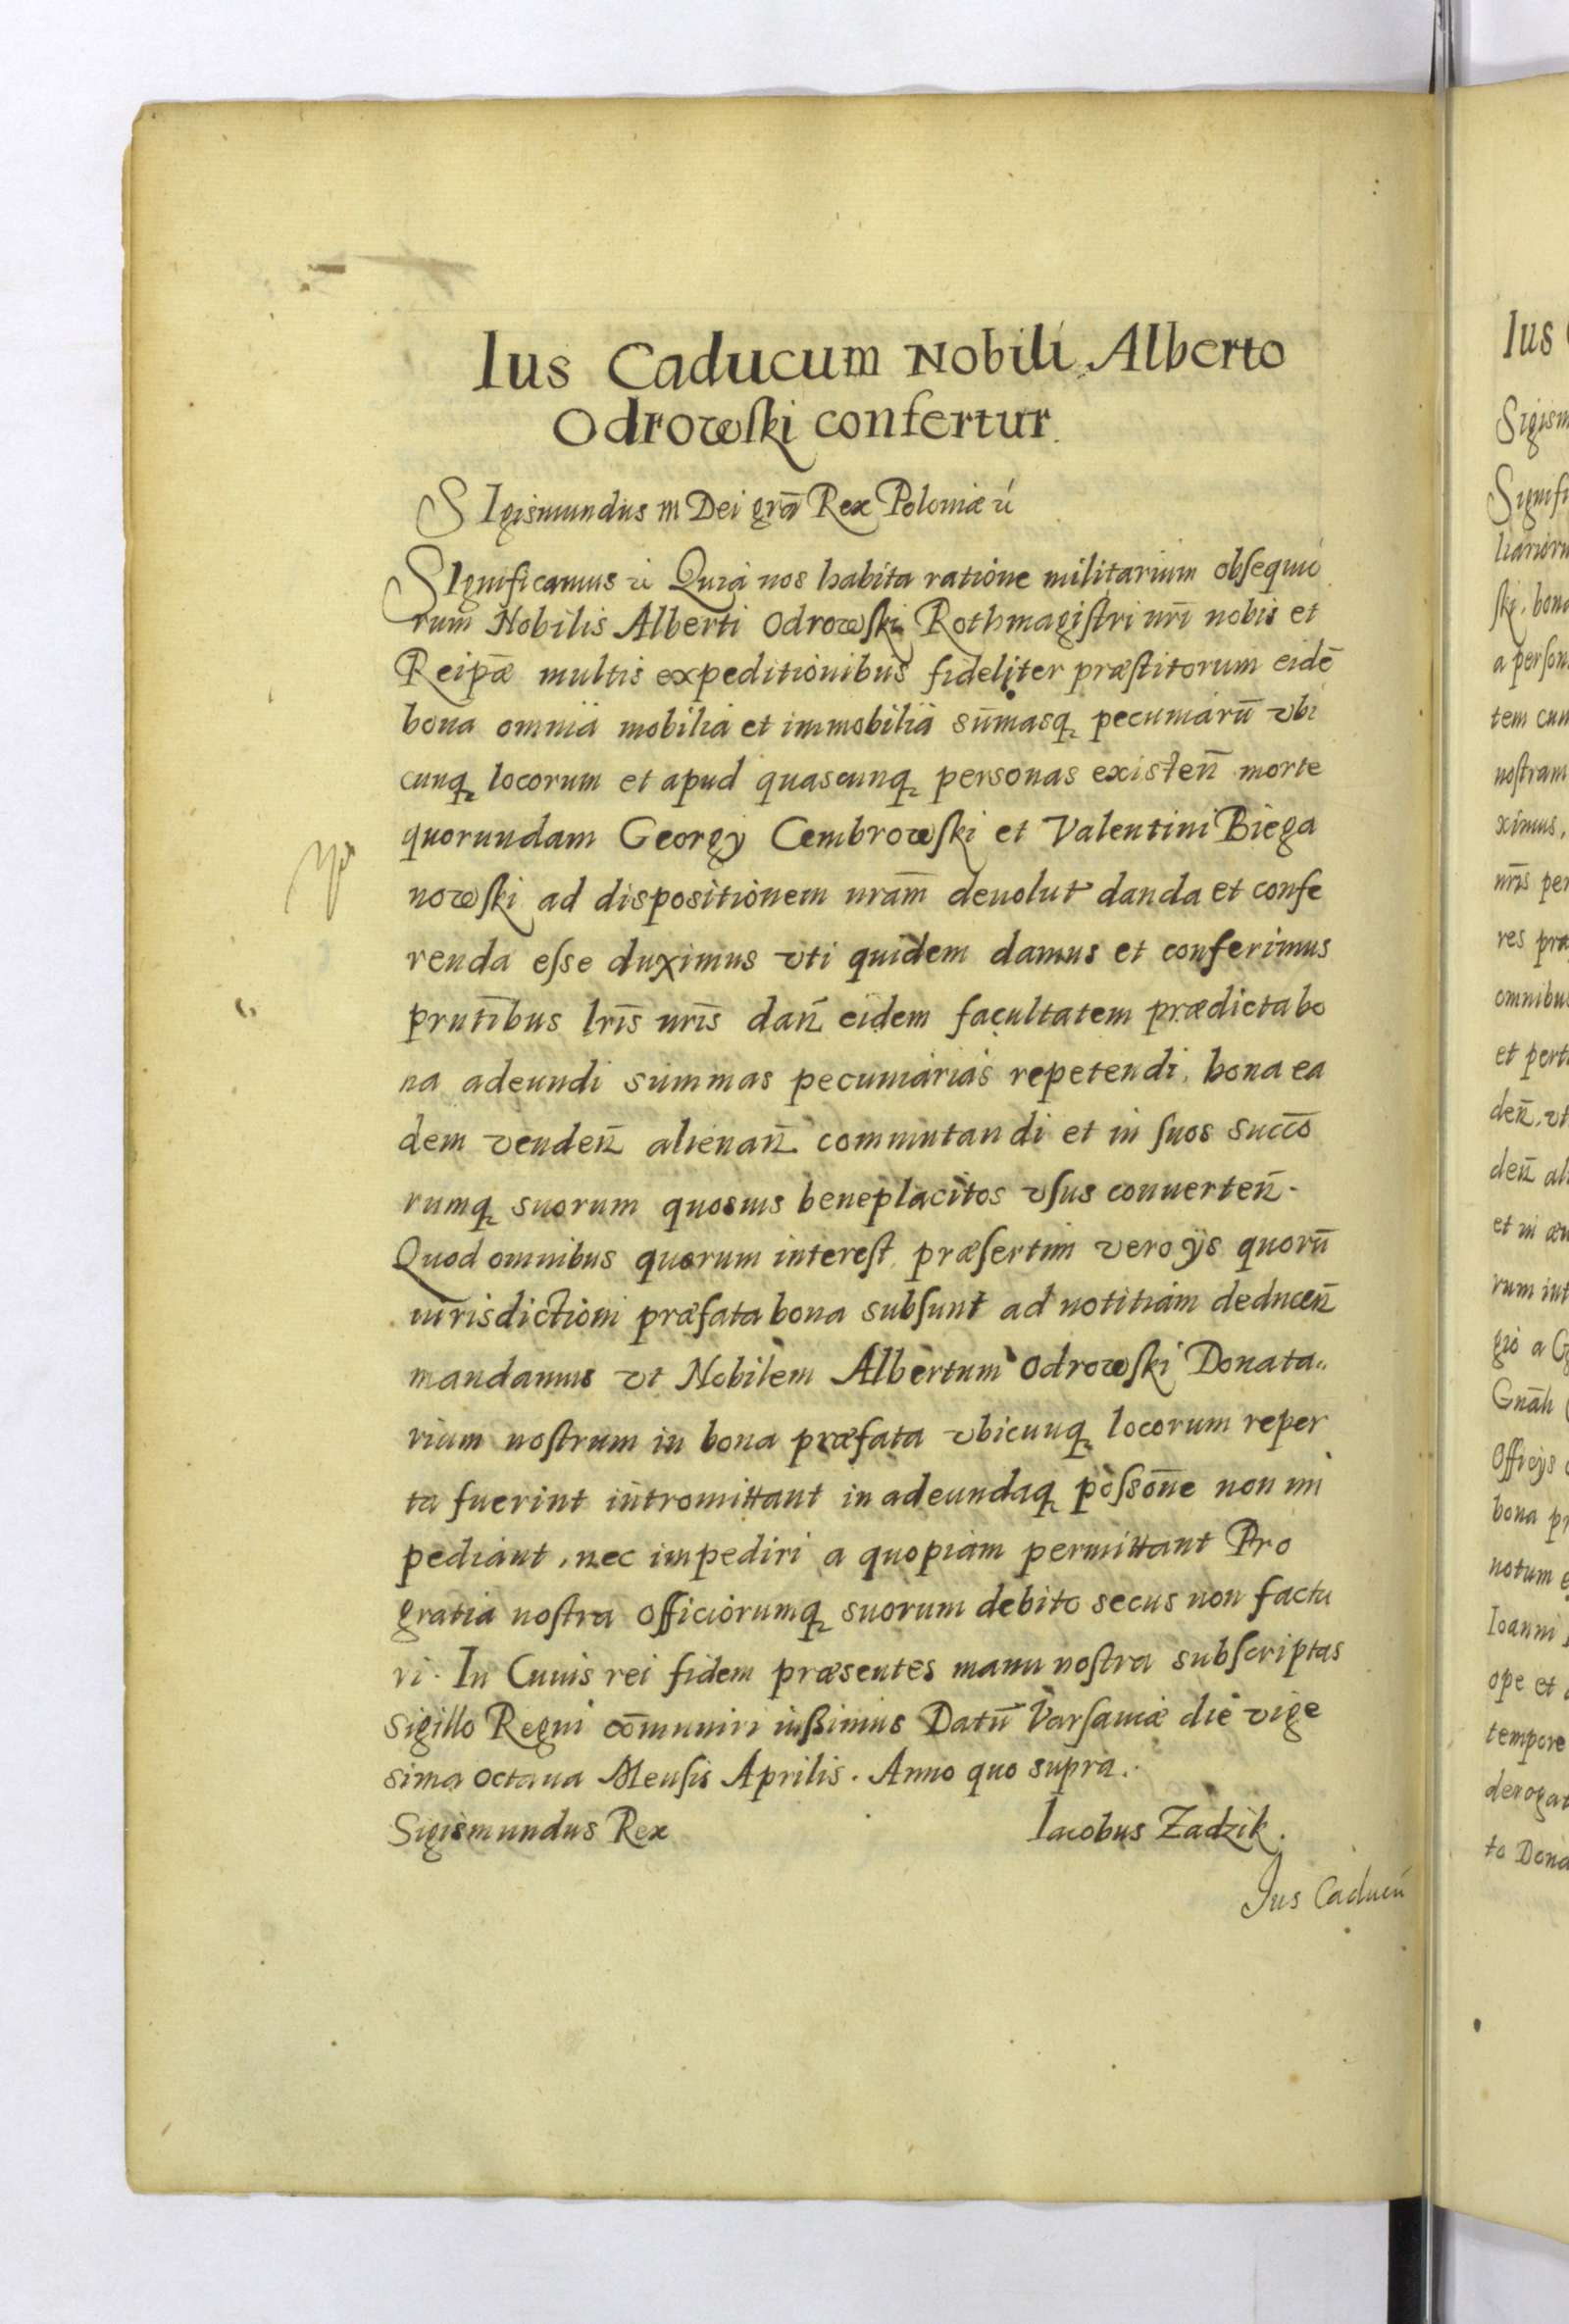 Ius Caducum Nobili Alberto
Odrowſki confertur.
SIgismundus III Dei grã Rex Poloniæ
SIgnificamus Quia nos habita ratione militarium obſequio
rum Nobilis Alberti Odrowſki Rothmagiſtri nr̃i nobis et
Reipæ̃ multis expeditionibus fideliter præſtitorum eidẽ
bona omnia mobilia et immobilia sum̃asq pecuniarũ vbi
cunq locorum et apud quascunq personas existen̄ morte
quorundam Georgÿ Cembrowſki et Valentini Biega
nowſki ad dispositionem nram̃ deuolut danda et confe
renda eſse duximus vti quidem damus et conferimus
prntĩbus lrĩs nrĩs dan̄ eidem facultatem prædicta bo
na adeundi summas pecuniarias repetendi, bona ea
dem venden̄ alienan̄ commutandi et in ſuos succõ
rumq suorum quosuis beneplacitos vſus conuerten̄.
Quod omnibus quorum intereſt præſertim vero ÿs quorũ
iurisdictioni præfata bona subſunt ad notitiam deducen̄
mandamus vt Nobilem Albertum Odrowſki Donata„
rium noſtrum in bona præfata vbicunq locorum reper
ta fuerint intromittant in adeundaq poſsonẽ non im
pediant, nec impediri a quopiam permittant Pro
gratia noſtra officiorumq suorum debito secus non factu
ri. In Cuius rei fidem præsentes manu noſtra subſcriptas
sigillo Regni com̃uniri iuſsimus Datũ Varſauiæ die vige
sima octaua Menſis Aprilis. Anno quo supra.
Sigismundus Rex Iacobus Zadzik.
Ius Caducũ
Ius
Sigism
Signifi
liariorum
ſki, bona
a person
tem cum
noſtram
ximus,
nrĩs per
res præ
omnibus
et perti
den̄, vt
den̄ al
rum int
gio a G
Gnãli
Officÿs
bona pr
notum e
Ioanni
ope et
tempore
derogat
to Dona